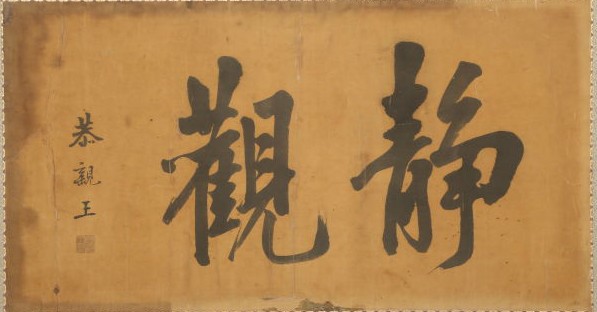 静觀
恭親王